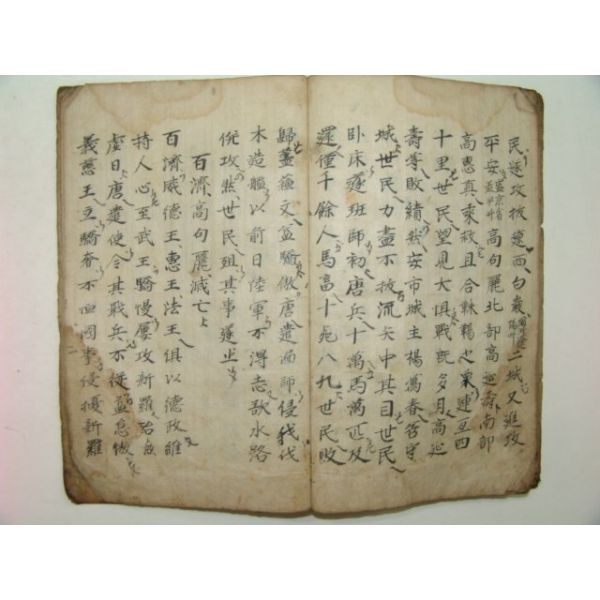 民逐攻拔遼西白巖二城又進攻
平安高句麗北部高延壽南部
高惠真乘救且合靺鞨之衆連亘四
十里世民望見大俱戰旣多月高延
壽等敗績然安市城主楊萬春固守
城世民力盡不拔流矢中其目世民
卧床遂班師初唐兵十萬馬萬匹及
還僅千餘人馬十死八九世民敗
歸蓋蘇文益驕傲唐遣師侵我伐
木造艦以前日陸軍不得志欲水路
侵攻然世民殂其事遂止
百濟高句麗滅亡
百濟威德王惠王法王俱以德政維
持人心至武王驕慢屢攻新羅殆無
虛日唐遣使令其戢兵不從益怠傲
義慈王立驕奢不恤國事侵擾新羅